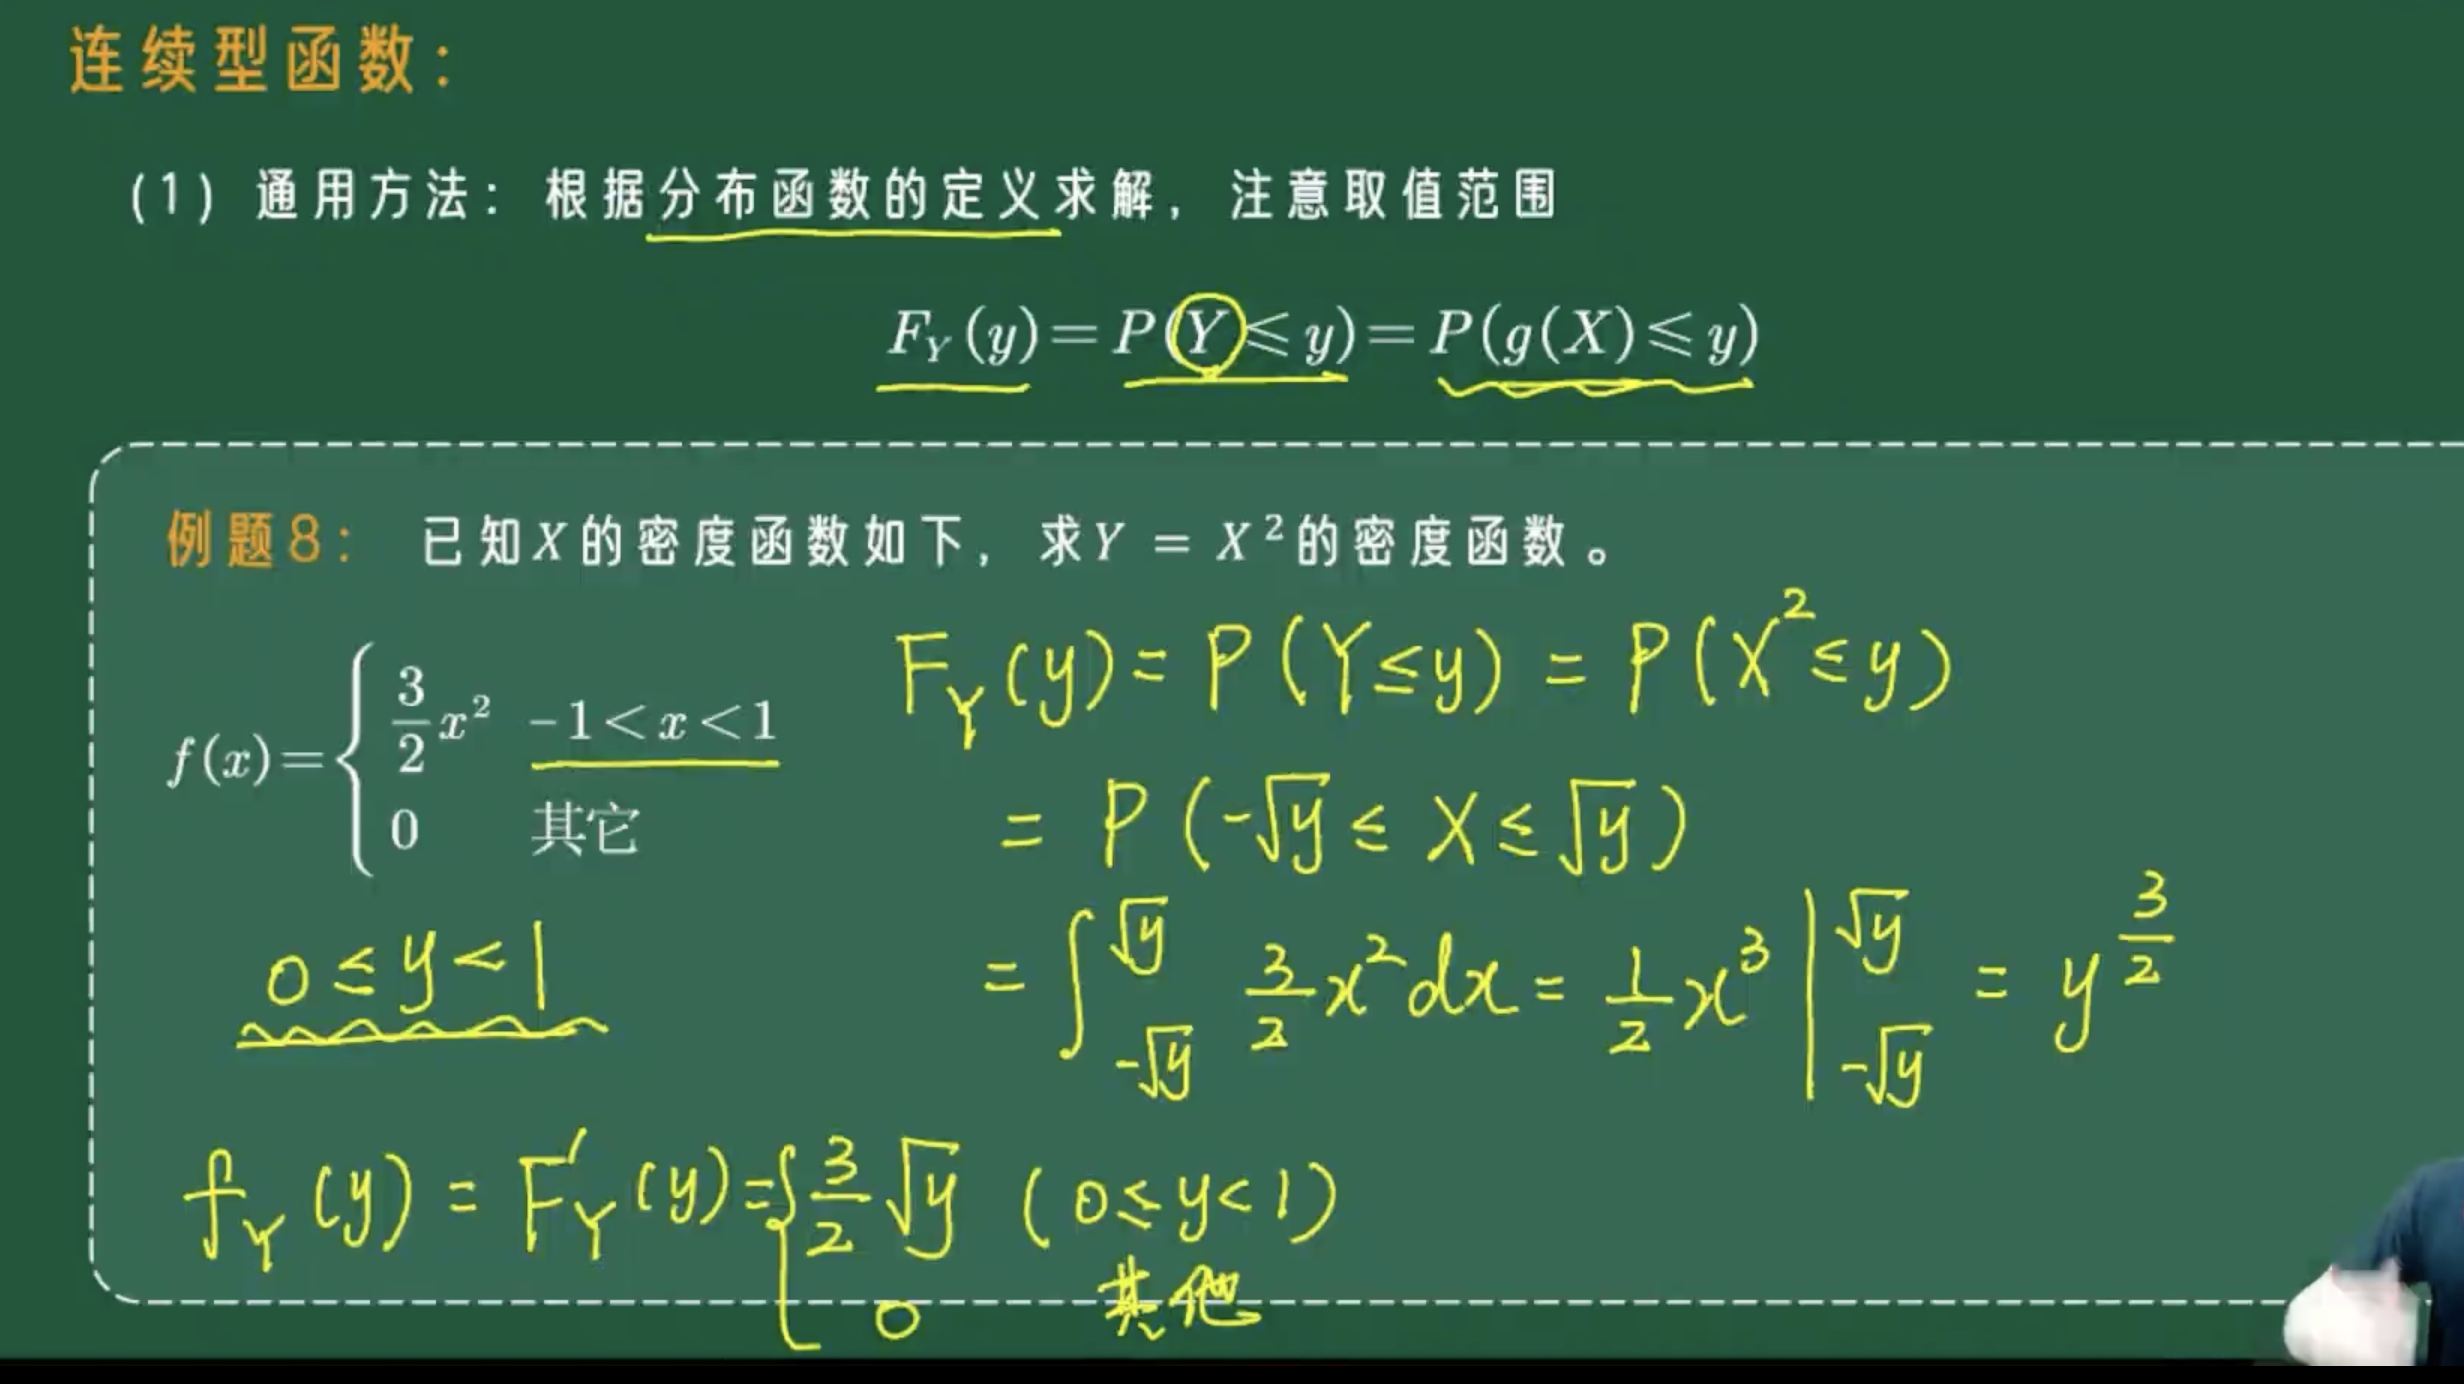 连续型函数：
(1) 通用方法：根据分布函数的定义求解，注意取值范围
F_Y(y)=P(Y⩽y)=P(g(X)⩽y)
例题8： 已知X的密度函数如下，求Y = X²的密度函数。
f(x)={ 3/2 x² -1<x<1
0 其它
F_Y(y)=P(Y≤y)=P(X²≤y)
=P(-√y≤X≤√y)
=∫_{-√y}^{√y} 3/2 x²dx=1/2 x³|_{-√y}^{√y}=y^{3/2}
0≤y<1
f_Y(y)=F'_Y(y)={ 3/2 √y (0≤y<1)
0 其他